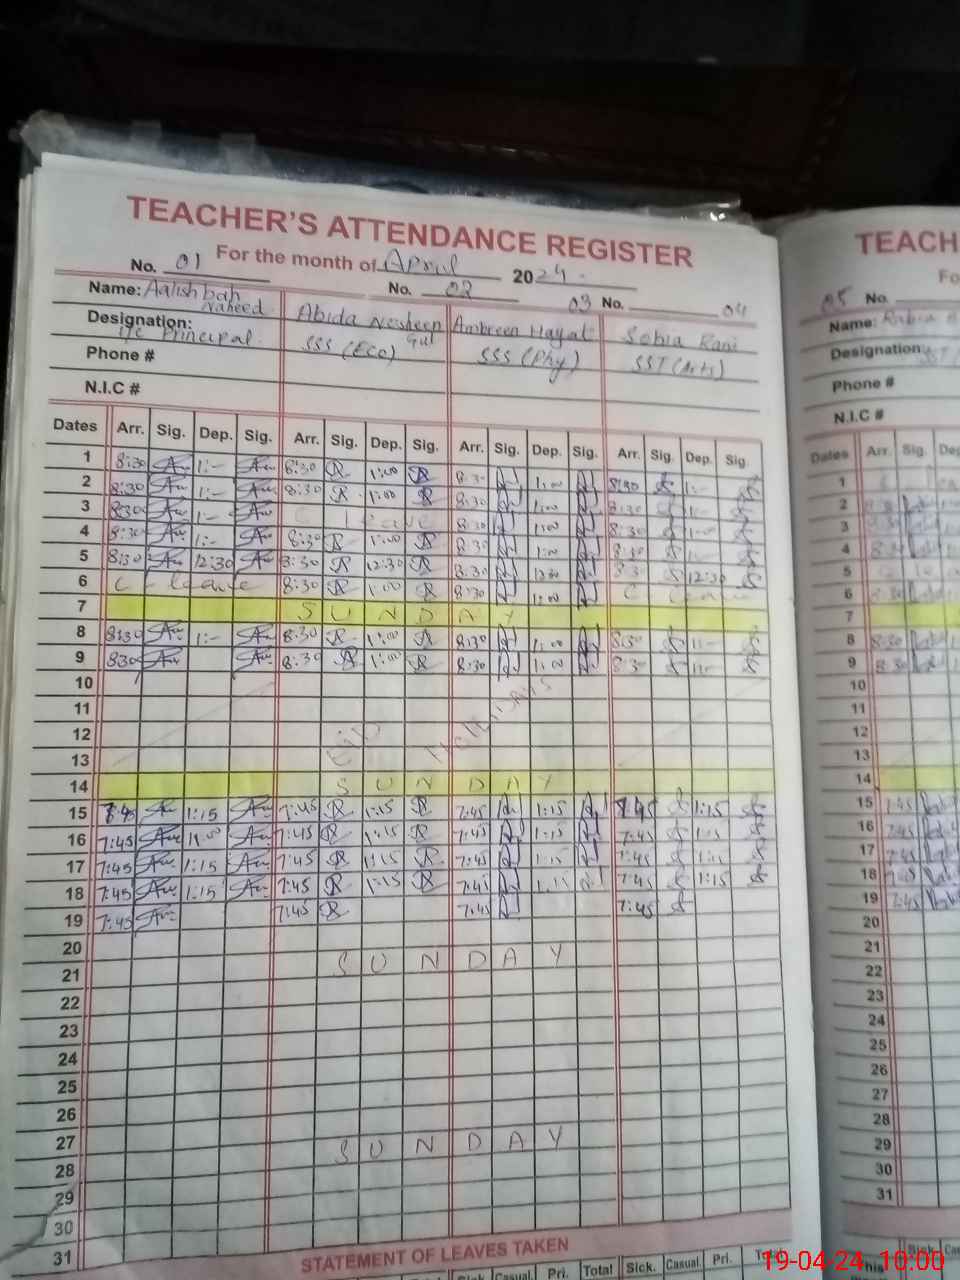 TEACHER'S ATTENDANCE REGISTER
For the month of April 2024
No. 01 No. 02 03 No. 04
Name: Aalishbah Naheed Abida Nosheen Gul Ambreen Hayat Sobia Rani
Designation: I/c Principal SSS (Eco) SSS (Phy) SST (Arts)
Phone #
N.I.C #
Dates Arr. Sig. Dep. Sig. Arr. Sig. Dep. Sig. Arr. Sig. Dep. Sig. Arr. Sig. Dep. Sig.
1 8:30 1:- 8:30 1:00 8:30 1:00 8:30 1:-
2 8:30 1:- 8:30 1:00 8:30 1:00 8:30 1:-
3 8:30 1:- C leave 8:30 1:00 8:30 1:00
4 8:30 1:- 8:30 1:00 8:30 1:00 8:30 1:-
5 8:30 12:30 8:30 12:30 8:30 12:30 8:30 12:30
6 C leave 8:30 1:00 8:30 1:00 C leave
7 SUNDAY
8 8:30 1:- 8:30 1:00 8:30 1:00 8:30 1:-
9 8:30 8:30 1:00 8:30 1:00 8:30 1:-
10
11 EID HOLIDAYS
12
13
14 SUNDAY
15 7:45 1:15 7:45 1:15 7:45 1:15 7:45 1:15
16 7:45 11:00 7:45 1:15 7:45 1:15 7:45 1:15
17 7:45 1:15 7:45 1:15 7:45 1:15 7:45 1:15
18 7:45 1:15 7:45 1:15 7:45 1:15 7:45 1:15
19 7:45 7:45 7:45 7:45
20
21 SUNDAY
22
23
24
25
26
27
28 SUNDAY
29
30
31
STATEMENT OF LEAVES TAKEN
Sick Casual. Pri. Total Sick. Casual. Pri. Total
TEACH
Fo
05 No.
Name: Rabia
Designation:
Phone #
N.I.C #
Dates Arr. Sig. Dep
1
2 8:30
3 8:30
4 8:30
5
6 8:30
7
8 8:30
9 8:30
10
11
12
13
14
15 7:45
16 7:45
17 7:45
18 7:45
19 7:45
20
21
22
23
24
25
26
27
28
29
30
31
This Sick Cas
19-04-24 10:00